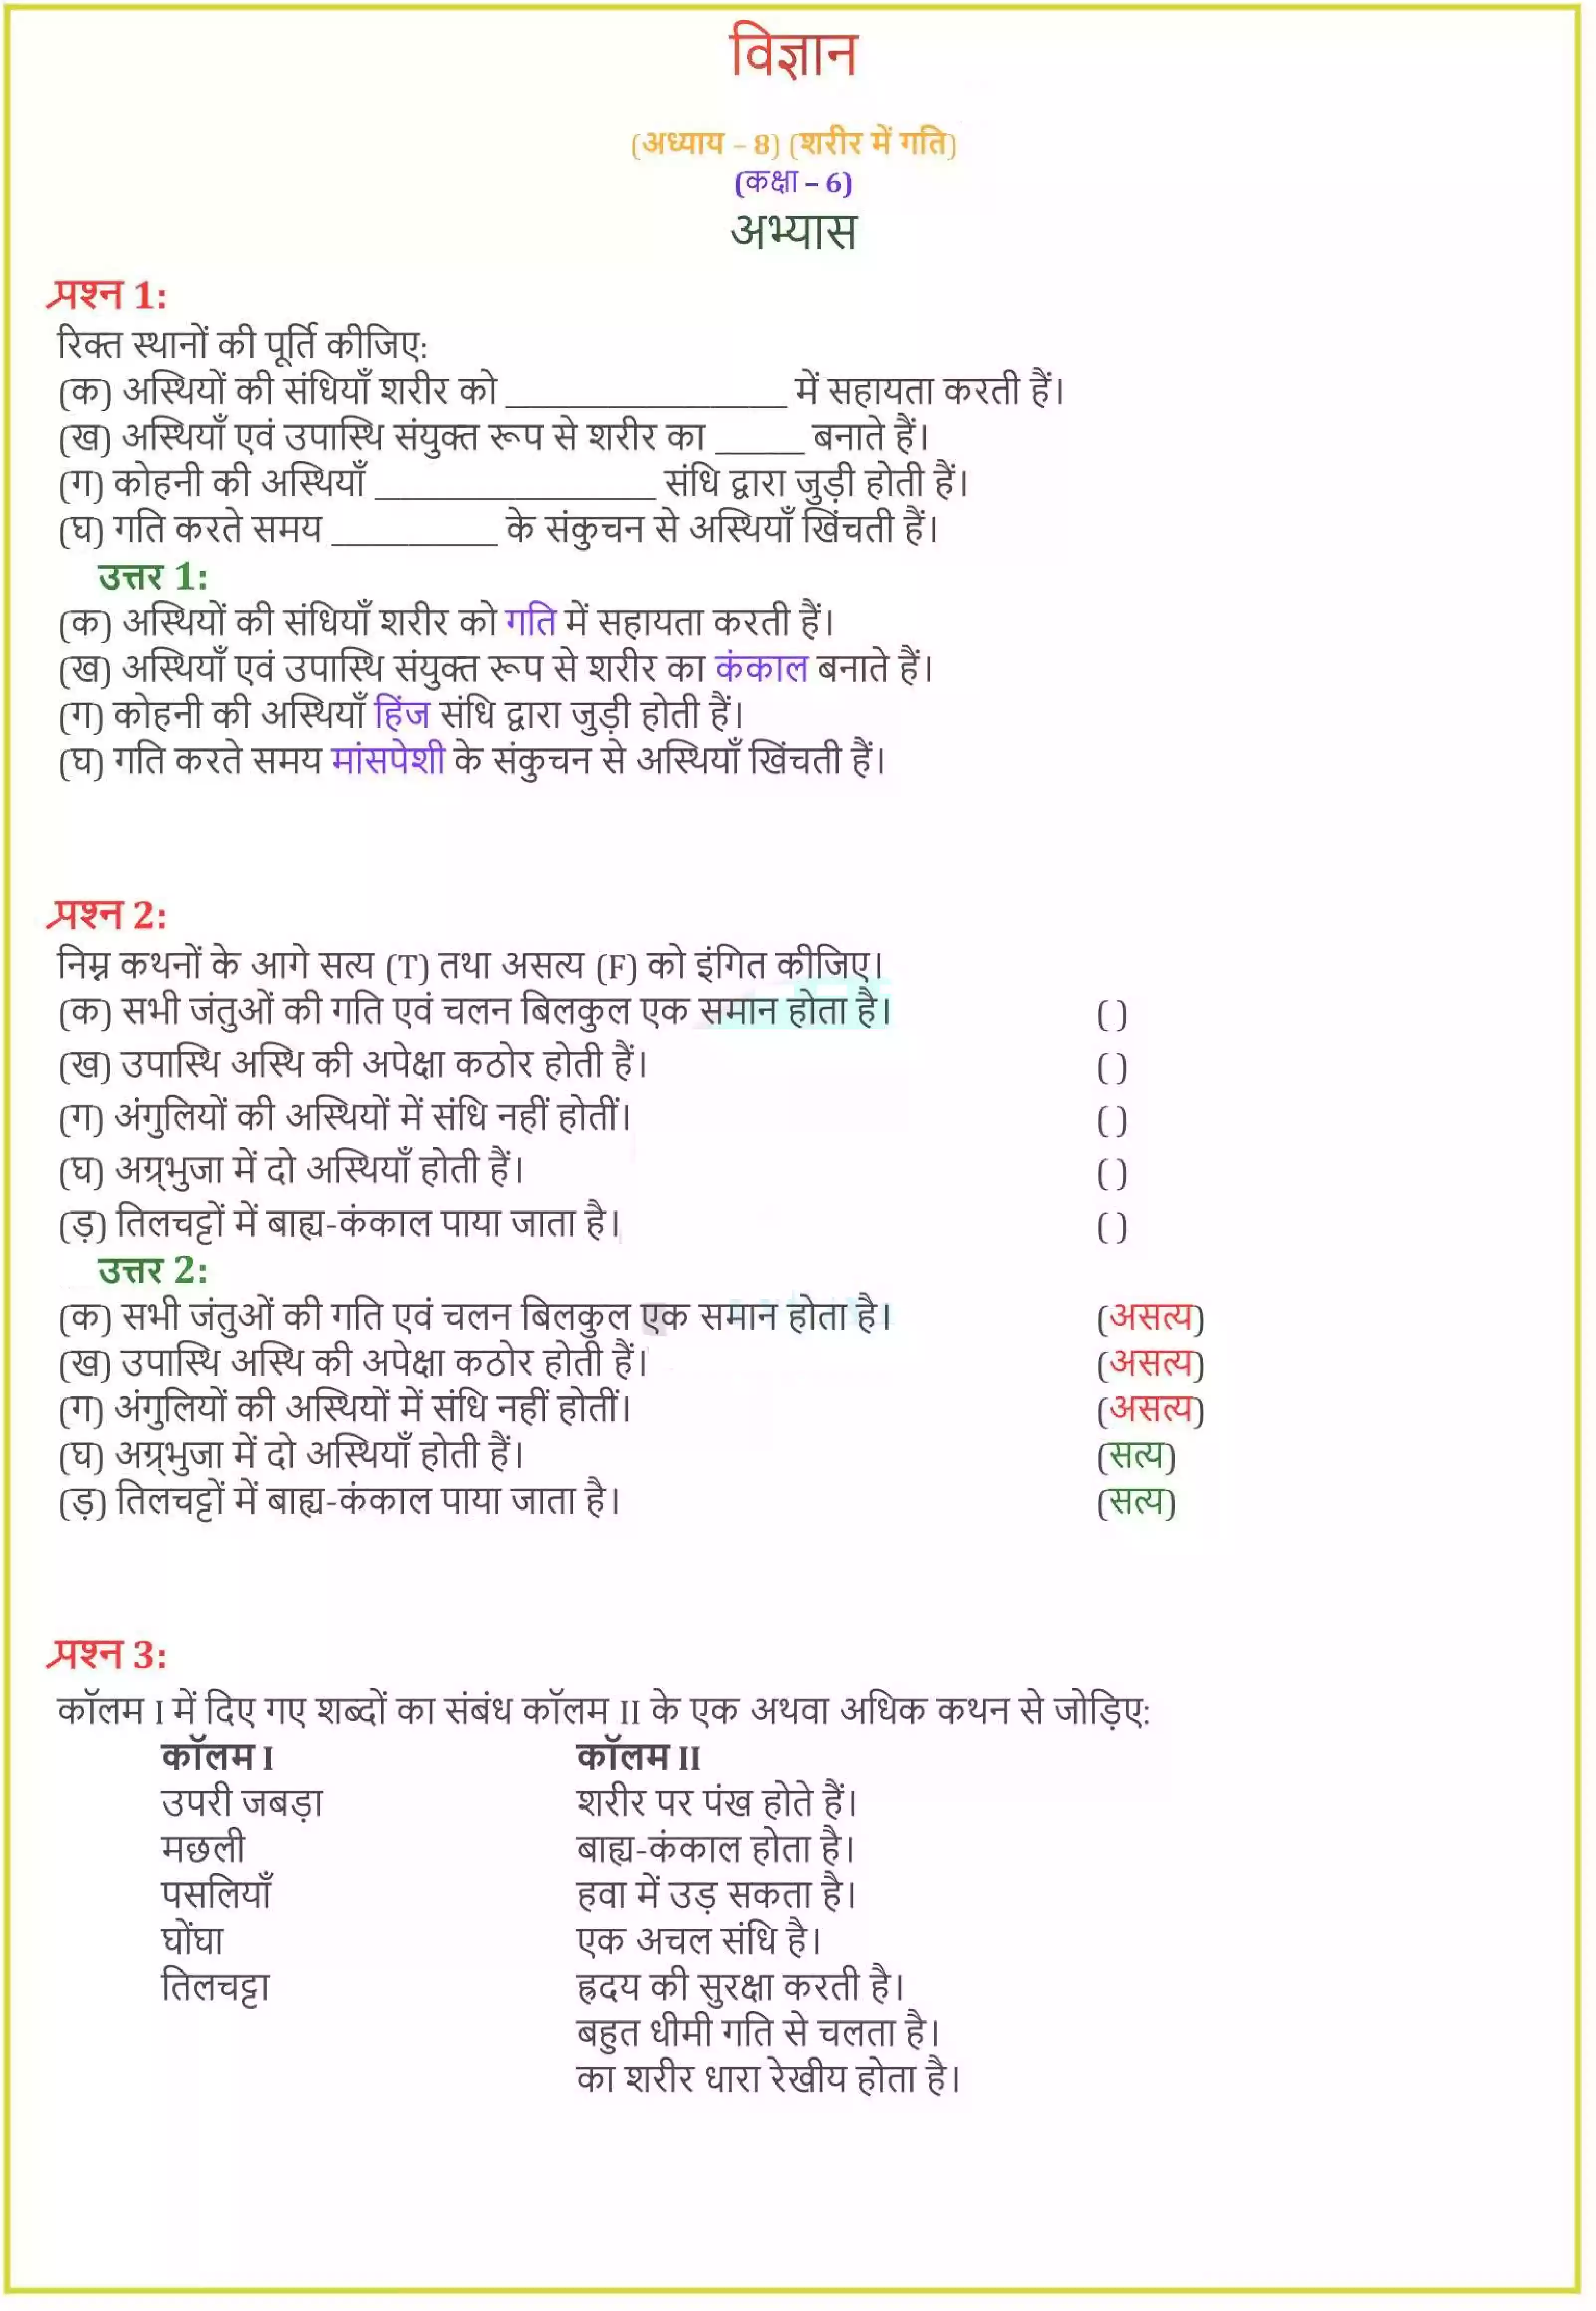 विज्ञान
(अध्याय – 8) (शरीर में गति)
(कक्षा – 6)
अभ्यास
प्रश्न 1:
रिक्त स्थानों की पूर्ति कीजिए:
(क) अस्थियों की संधियाँ शरीर को ________________ में सहायता करती हैं।
(ख) अस्थियाँ एवं उपास्थि संयुक्त रूप से शरीर का _____ बनाते हैं।
(ग) कोहनी की अस्थियाँ ________________ संधि द्वारा जुड़ी होती हैं।
(घ) गति करते समय _________ के संकुचन से अस्थियाँ खिंचती हैं।
उत्तर 1:
(क) अस्थियों की संधियाँ शरीर को गति में सहायता करती हैं।
(ख) अस्थियाँ एवं उपास्थि संयुक्त रूप से शरीर का कंकाल बनाते हैं।
(ग) कोहनी की अस्थियाँ हिंज संधि द्वारा जुड़ी होती हैं।
(घ) गति करते समय मांसपेशी के संकुचन से अस्थियाँ खिंचती हैं।
प्रश्न 2:
निम्न कथनों के आगे सत्य (T) तथा असत्य (F) को इंगित कीजिए।
(क) सभी जंतुओं की गति एवं चलन बिलकुल एक समान होता है। ( )
(ख) उपास्थि अस्थि की अपेक्षा कठोर होती हैं। ( )
(ग) अंगुलियों की अस्थियों में संधि नहीं होतीं। ( )
(घ) अग्र्भुजा में दो अस्थियाँ होती हैं। ( )
(ड़) तिलचट्टों में बाह्य-कंकाल पाया जाता है। ( )
उत्तर 2:
(क) सभी जंतुओं की गति एवं चलन बिलकुल एक समान होता है। (असत्य)
(ख) उपास्थि अस्थि की अपेक्षा कठोर होती हैं। (असत्य)
(ग) अंगुलियों की अस्थियों में संधि नहीं होतीं। (असत्य)
(घ) अग्र्भुजा में दो अस्थियाँ होती हैं। (सत्य)
(ड़) तिलचट्टों में बाह्य-कंकाल पाया जाता है। (सत्य)
प्रश्न 3:
कॉलम I में दिए गए शब्दों का संबंध कॉलम II के एक अथवा अधिक कथन से जोड़िए:
कॉलम I कॉलम II
उपरी जबड़ा शरीर पर पंख होते हैं।
मछली बाह्य-कंकाल होता है।
पसलियाँ हवा में उड़ सकता है।
घोंघा एक अचल संधि है।
तिलचट्टा ह्रदय की सुरक्षा करती है।
बहुत धीमी गति से चलता है।
का शरीर धारा रेखीय होता है।